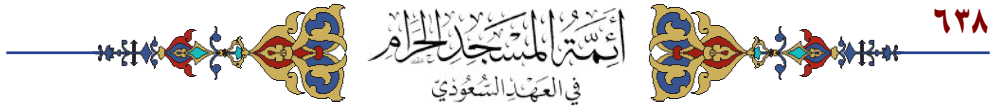 ٦٣٨
أَئِمَّةُ المَسْجِدِ الحَرَامِ
فِي العَهْدِ السُّعُودِيّ